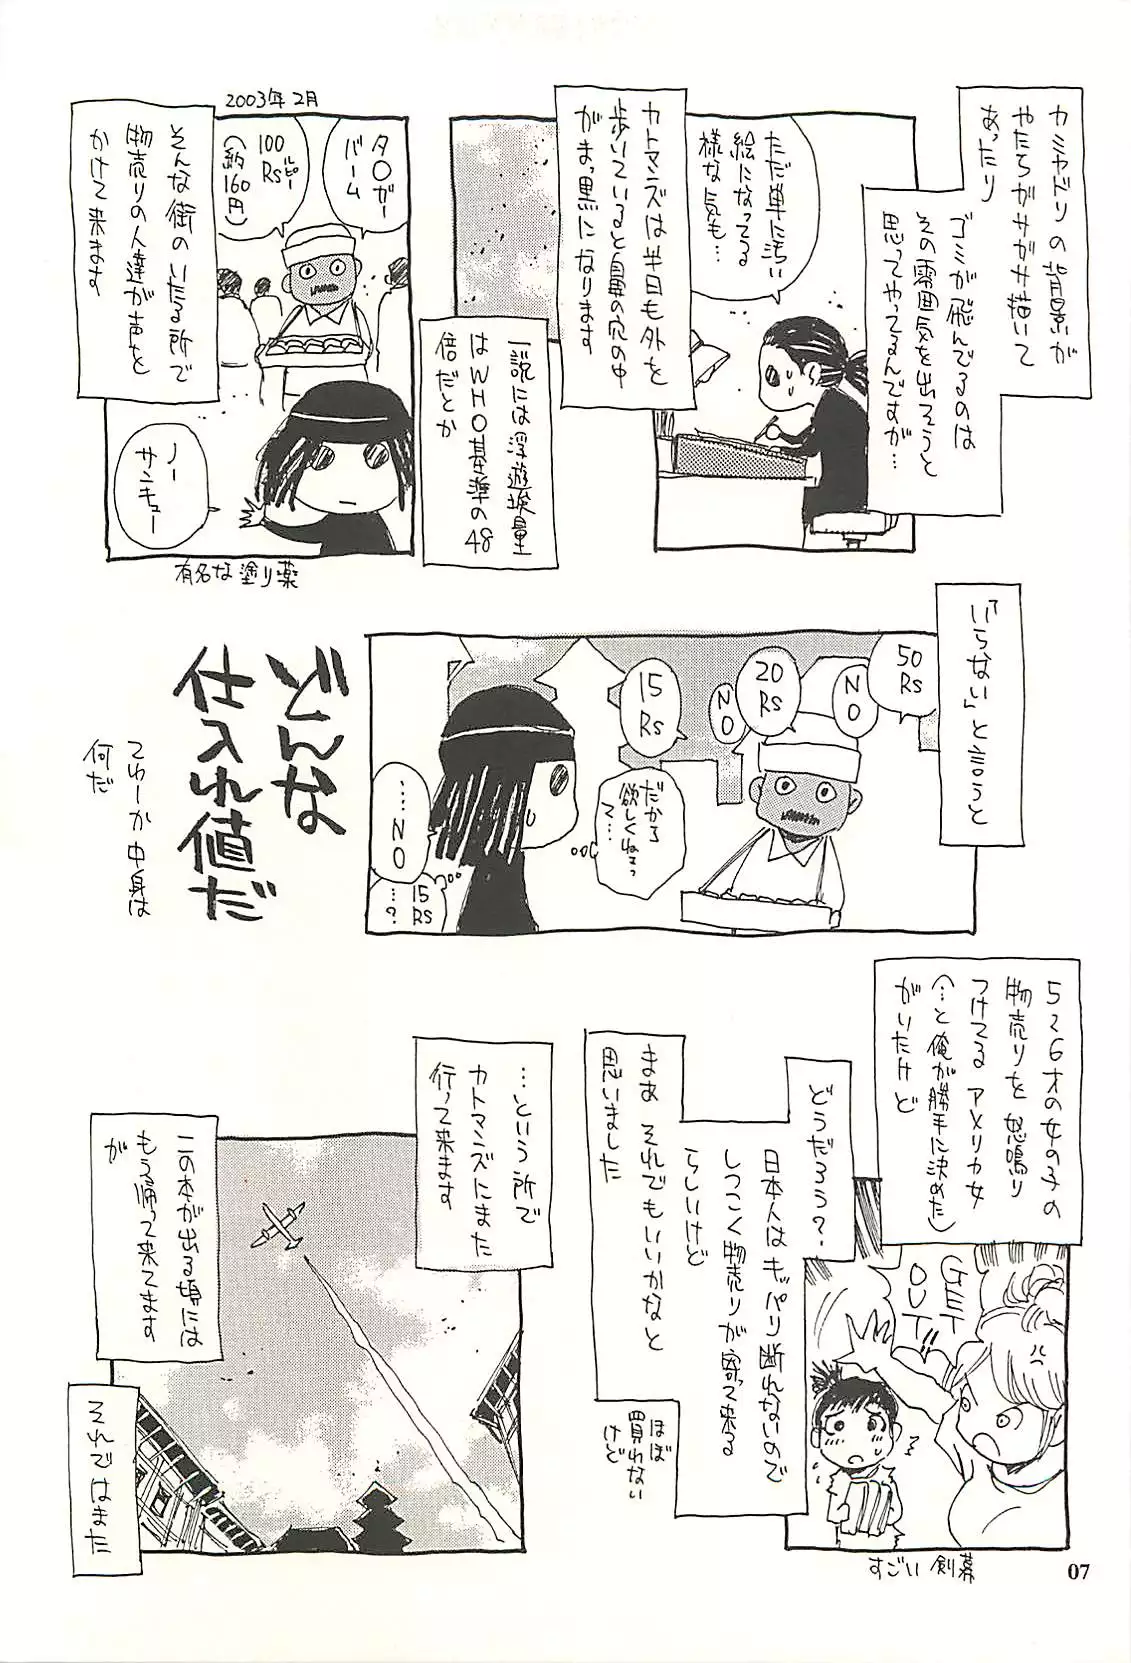 カミヤドリの背景が
やたらがサガサ描いて
あったり
ゴミが飛んでるのは
その雰囲気を出そうと
思ってやってるんですが…
ただ単に汚い
絵になってる
様な気も…
カトマンズは半日も外を
歩いていると鼻の穴の中
がまっ黒になります
一説には浮遊埃量
はWHO基準の48
倍だとか
2003年2月
そんな街のいたる所で
物売りの人達が声を
かけて来ます
タ〇ガー
バーム
100
Rs
ルピー
(約160円)
ノー
サンキュー
有名な塗り薬
「いらない」と言うと
50
Rs
NO
20
Rs
NO
15
Rs
だから
欲しくねーっ
て…
……NO
15
Rs
…?
どんな
仕入れ値だ
てゆーか中身は
何だ
5〜6才の女の子の
物売りを怒鳴り
つけてるアメリカ女
(…と俺が勝手に決めた)
がいたけど
GET
OUT!!
すごい剣幕
どうだろう?
日本人はキッパリ断れないので
しつこく物売りが寄って来る
らしいけど
まあ それでもいいかなと
思いました
ほぼ
買わない
けど
…という所で
カトマンズにまた
行って来ます
この本が出る頃には
もう帰って来てます
が
それではまた
07